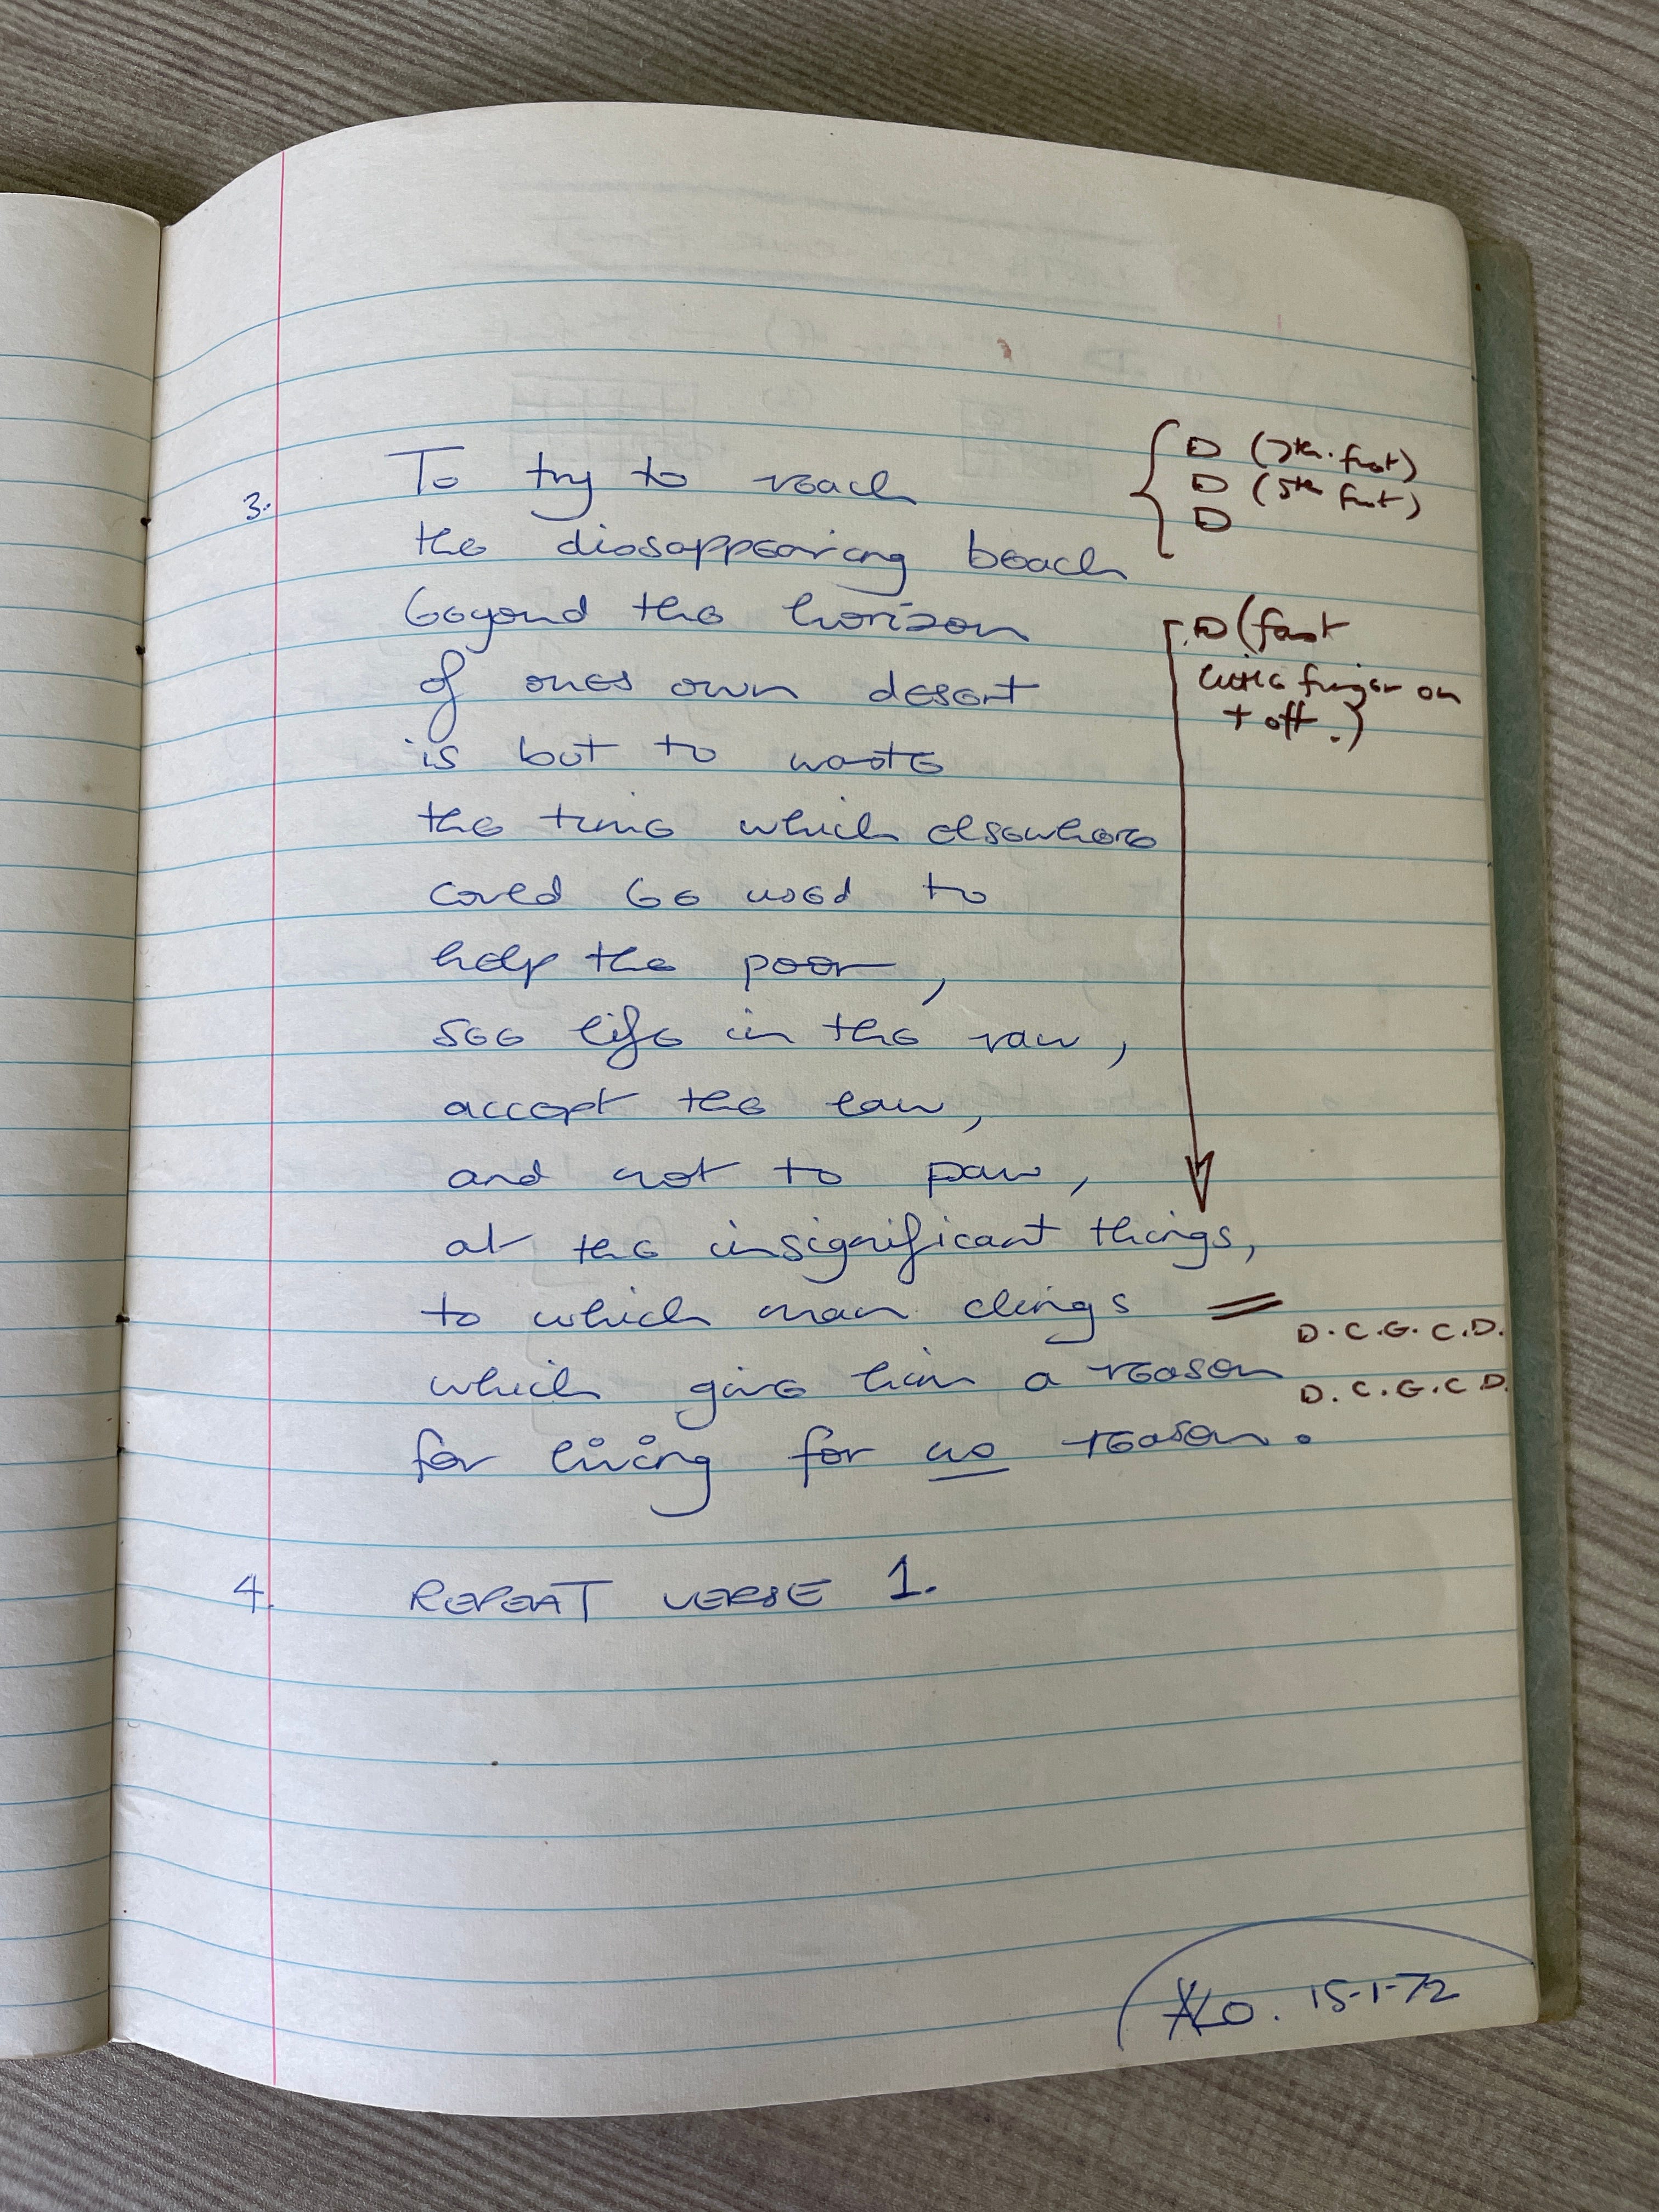 3. To try to reach
the dissappearing beach
beyond the horizon
of ones own desert
is but to waste
the time which elsewhere
could be used to
help the poor,
see life in the raw,
accept the law,
and not to paw,
at the insignificant things,
to which man clings =
which give him a reason
for living for no reason.
4. REPEAT VERSE 1.
D (7th. fret)
D (5th fret)
D
D (fast
little finger on
+ off.)
D.C.G.C.D.
D.C.G.C D.
15-1-72